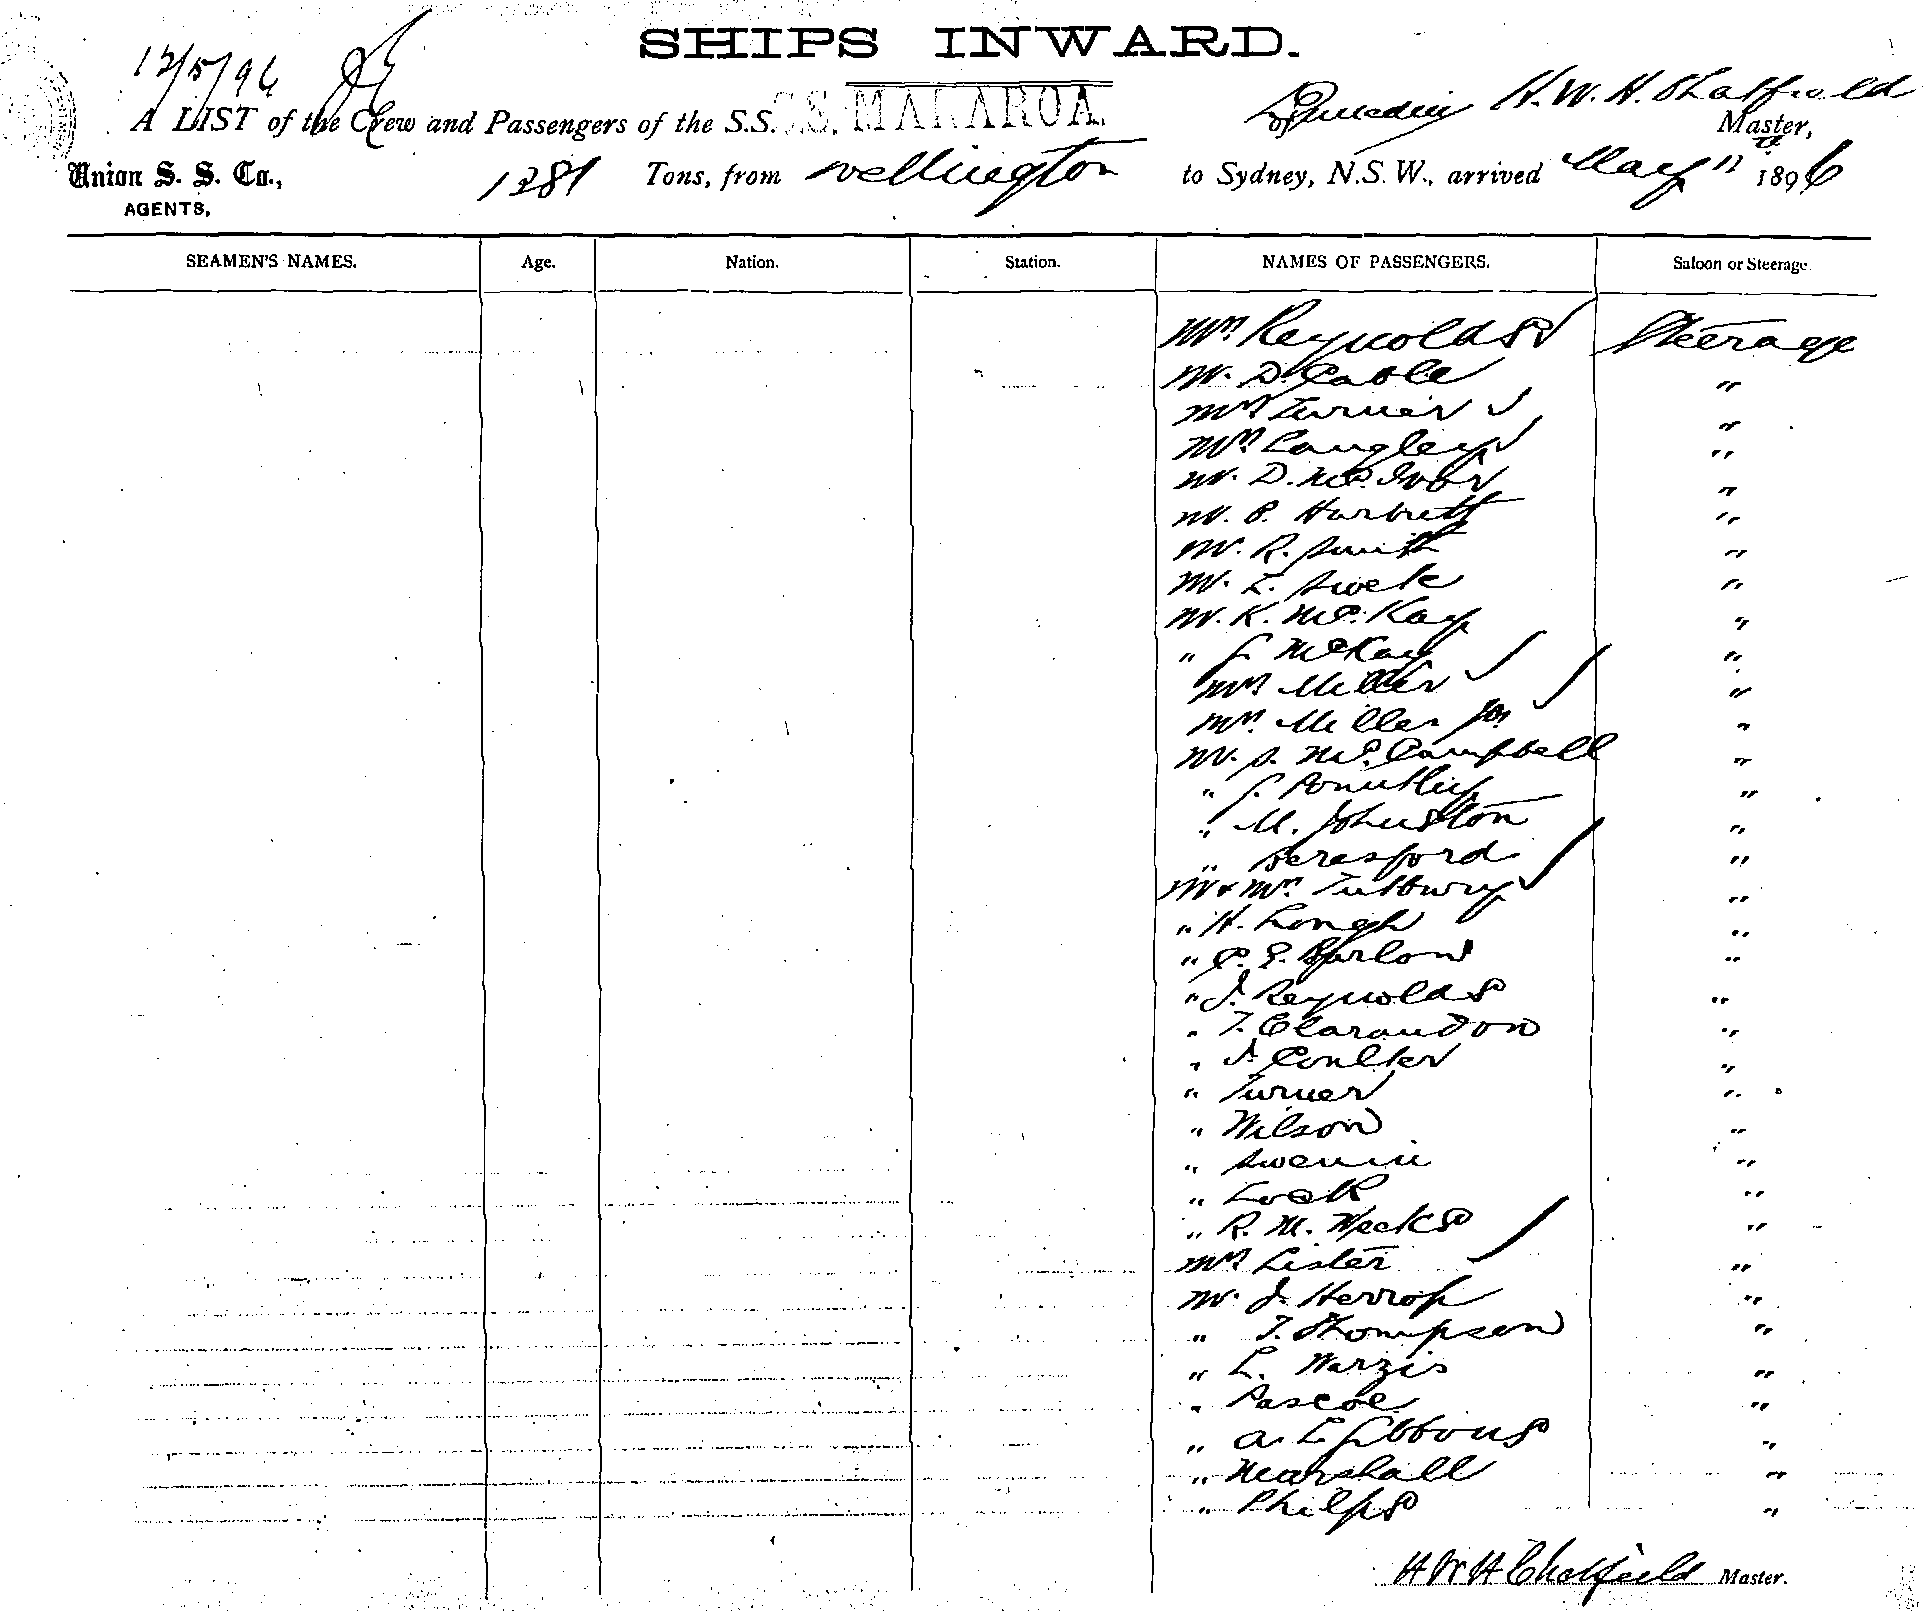 SHIPS INWARD.
12/5/96
A LIST of the Crew and Passengers of the S.S. S.S. MAKAROA. Dunedin H. W. H. Chatfield Master,
Union S. S. Co., 1281 Tons, from Wellington to Sydney, N.S.W., arrived May 11 1896
AGENTS,
SEAMEN'S NAMES. Age. Nation. Station. NAMES OF PASSENGERS. Saloon or Steerage.
Mrs Reynolds Steerage
Mr. D. Cable "
Mrs Turner "
Mrs Langley "
Mr. D. Mc. Ivor "
Mr. P. "
Mr. R. Smith "
Mr. L. "
Mr. K. Mc. Kay "
" J. McKay "
Mrs Miller "
Mrs. Miller Jnr "
Mr. S. Mc. Campbell "
" J. "
" M. Johnston "
" Beresford "
Mr & Mrs. Tutbury "
" H. Longh "
" C. E. Barlow "
" J. Reynolds "
" T. Clarandon "
" J. Coulter "
" Turner "
" Wilson "
" "
" Lock "
" R. M. Weeks "
Mrs Lister "
Mr. J. Herrop "
" T. Thompson "
" L. Warzis "
" Pascoe "
" A. L. Gibbons "
" Marshall "
" Philps "
H W H Chatfield Master.